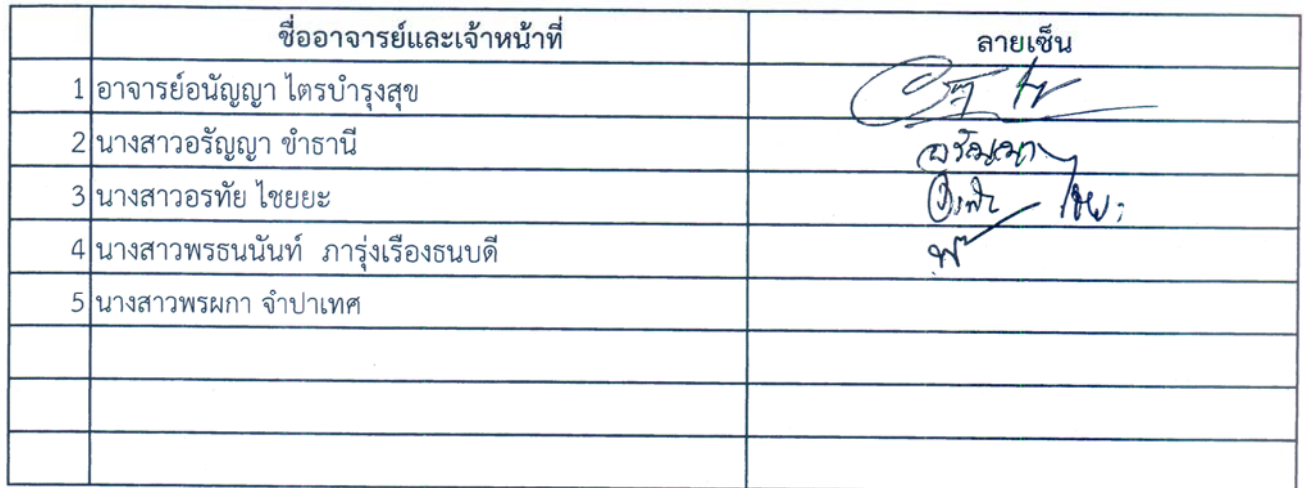 ชื่ออาจารย์และเจ้าหน้าที่ ลายเซ็น
1 อาจารย์อนัญญา ไตรบำรุงสุข
2 นางสาวอรัญญา ขำธานี อรัญญา
3 นางสาวอรทัย ไชยยะ
4 นางสาวพรธนนันท์ ภารุ่งเรืองธนบดี
5 นางสาวพรผกา จำปาเทศ